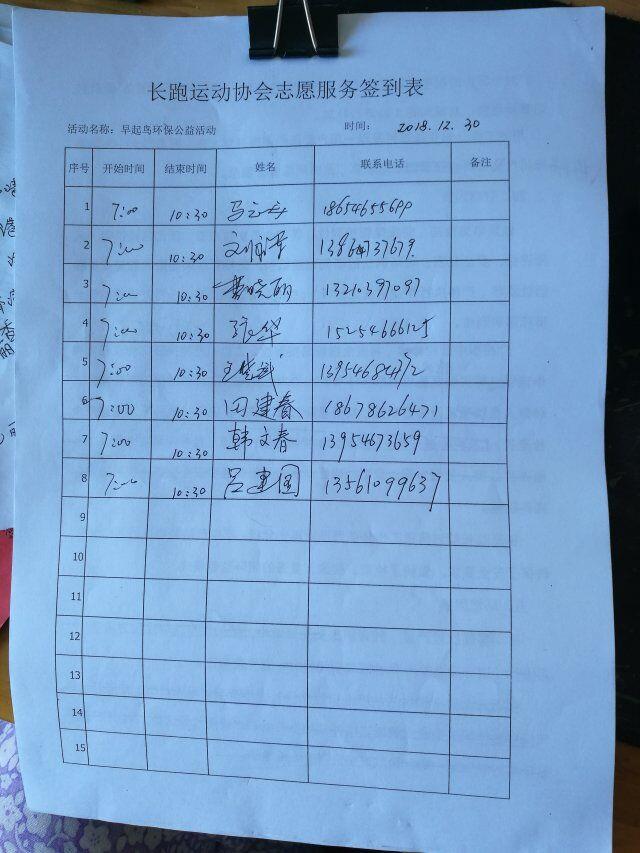 长跑运动协会志愿服务签到表
活动名称：早起鸟环保公益活动 时间： 2018.12.30
序号 开始时间 结束时间 姓名 联系电话 备注
1 7:00 10:30 18654655699
2 7:00 10:30
3 7:00 10:30 曹晓丽 13210397097
4 7:00 10:30 15254666125
5 7:00 10:30
6 7:00 10:30 田建春 18678626471
7 7:00 10:30 韩文春 13954673659
8 7:00 10:30 吕建国 13561099637
9
10
11
12
13
14
15